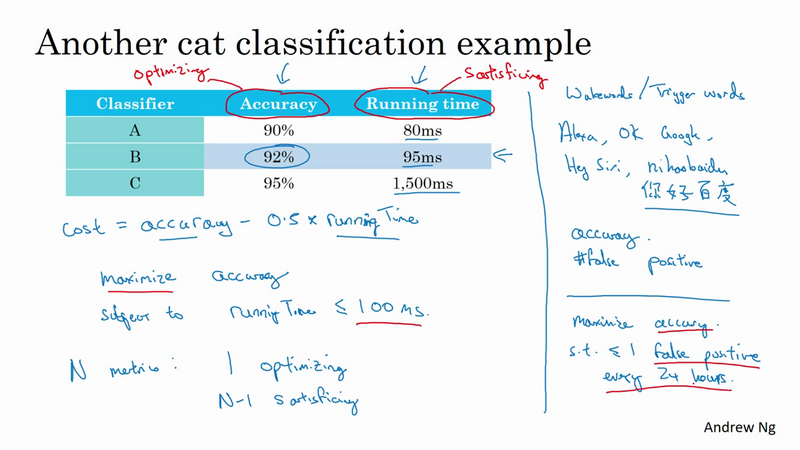 Another cat classification example
Optimizing
Satisficing
Classifier Accuracy Running time
A 90% 80ms
B 92% 95ms
C 95% 1,500ms
Cost = accuracy - 0.5 x runningTime
maximize accuracy
subject to runningTime ≤ 100 ms.
N metrics: 1 optimizing
N-1 satisficing
Wakewords / Trigger words
Alexa, OK Google,
Hey Siri, nihaobaidu
你好百度
accuracy.
#false positive
maximize accuracy.
s.t. ≤ 1 false positive
every 24 hours.
Andrew Ng